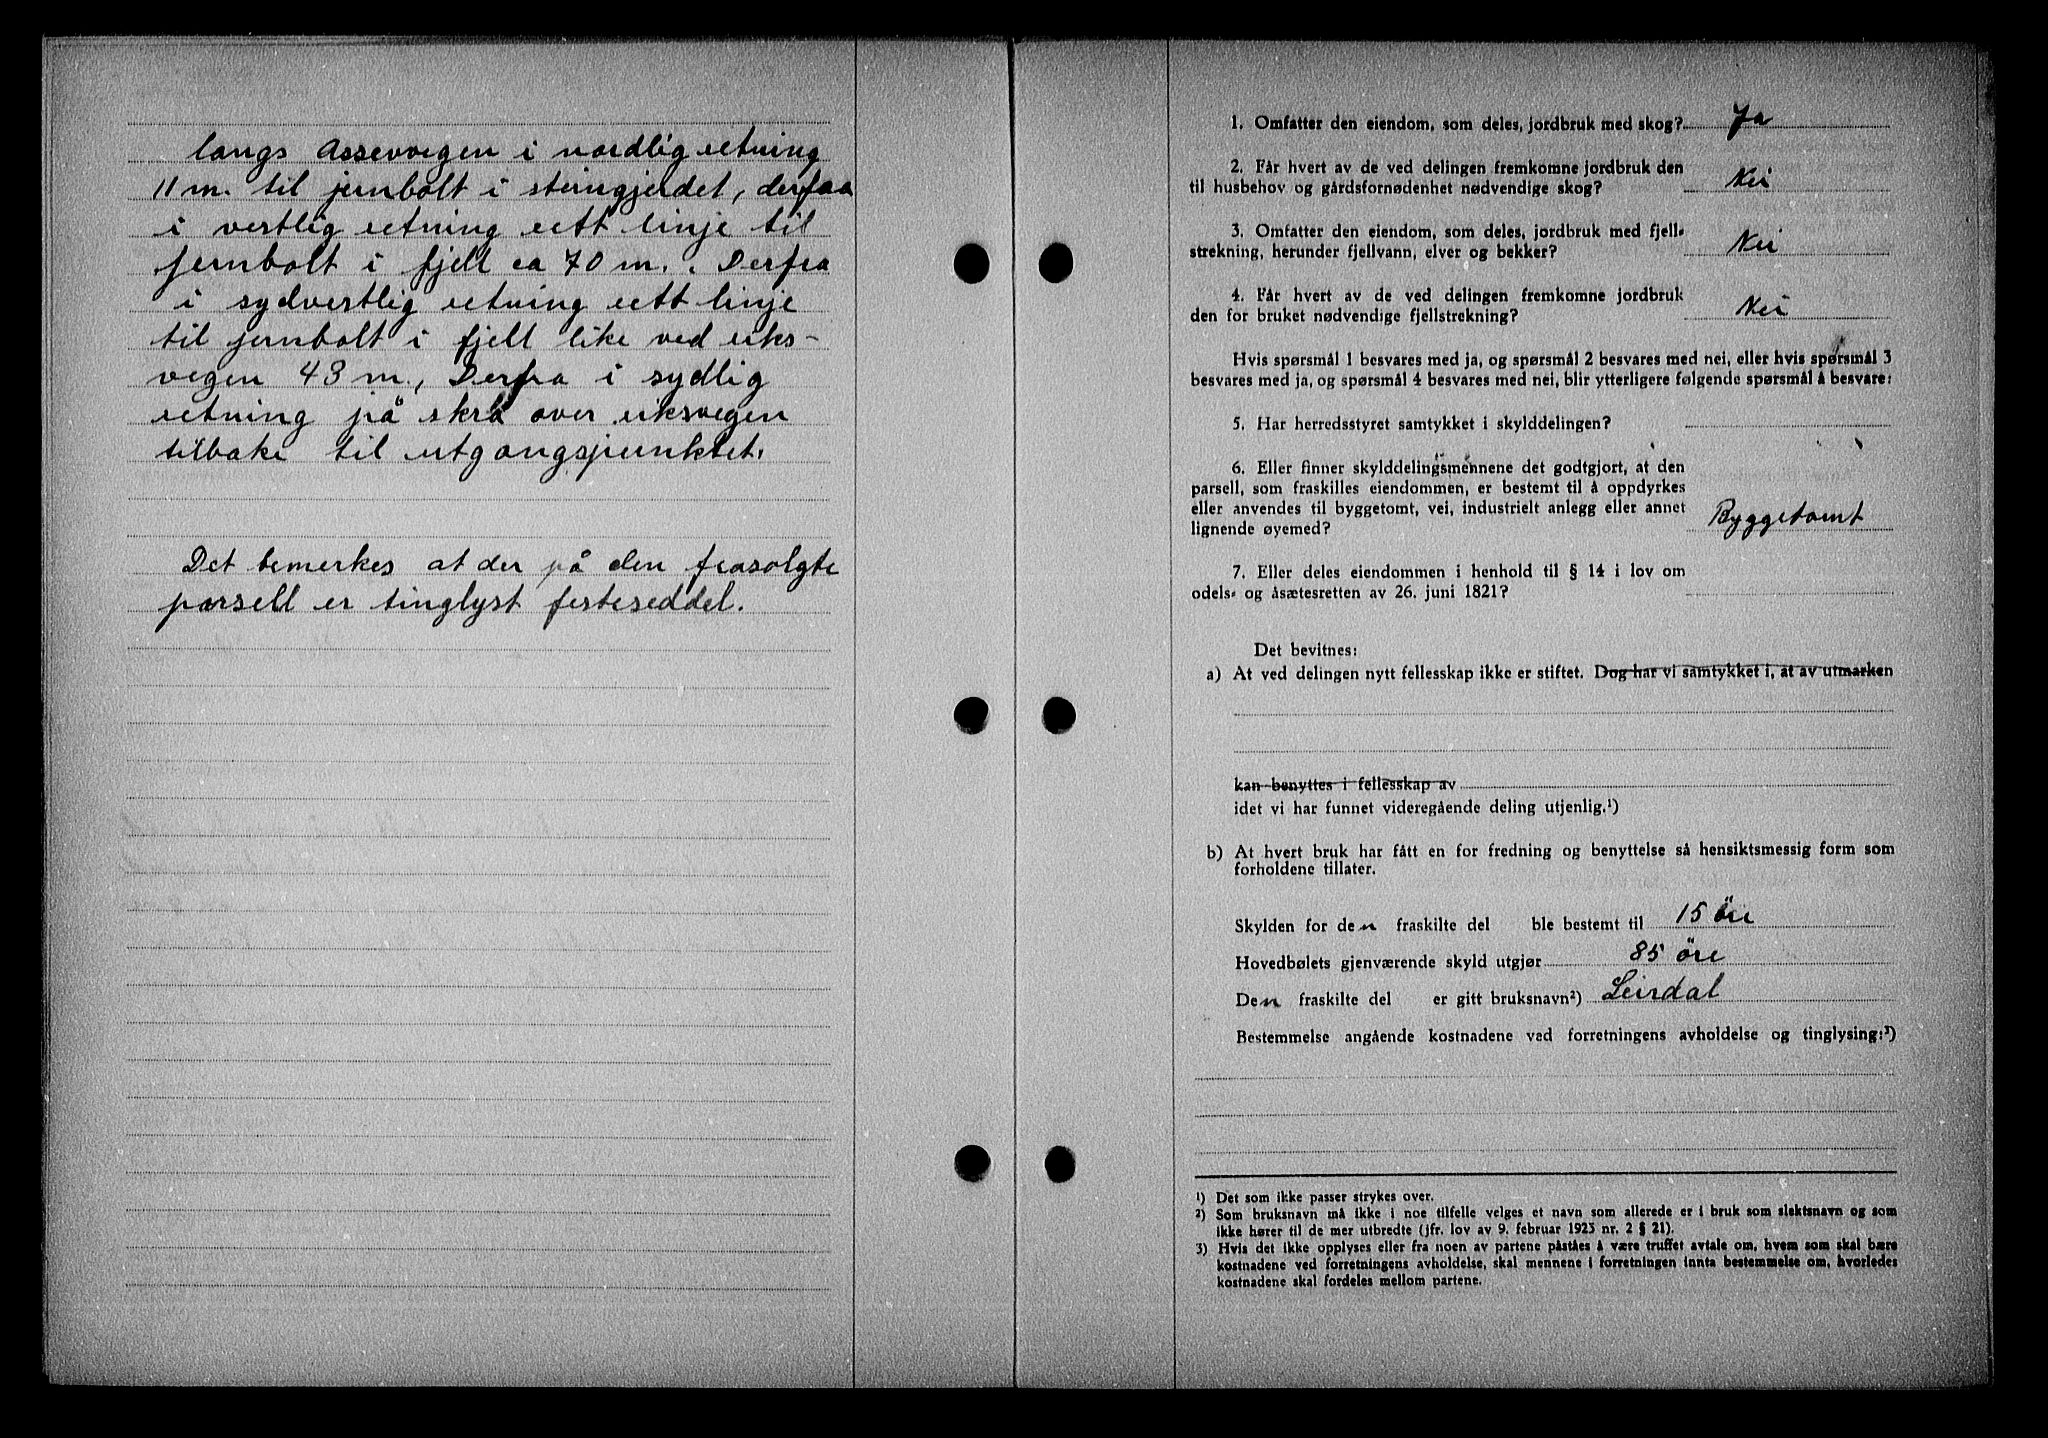 langs Assevegen i nordlig retning
11 m. til jernbolt i steingjerdet, derfraa
i vestlig retning rett linje til
jernbolt i fjell ca 70 m., Derfra
i sydvestlig retning rett linje
til jernbolt i fjell like ved riks-
vegen 43 m., Derfra i sydlig
retning på skrå over riksvegen
tilbake til utgangspunktet.
Det bemerkes at der på den frasolgte
parsell er tinglyst festeseddel.
1. Omfatter den eiendom, som deles, jordbruk med skog? Ja
2. Får hvert av de ved delingen fremkomne jordbruk den
til husbehov og gårdsfornødenhet nødvendige skog? Nei
3. Omfatter den eiendom, som deles, jordbruk med fjell-
strekning, herunder fjellvann, elver og bekker? Nei
4. Får hvert av de ved delingen fremkomne jordbruk
den for bruket nødvendige fjellstrekning? Nei
Hvis spørsmål 1 besvares med ja, og spørsmål 2 besvares med nei, eller hvis spørsmål 3
besvares med ja, og spørsmål 4 besvares med nei, blir ytterligere følgende spørsmål å besvare:
5. Har herredsstyret samtykket i skylddelingen?
6. Eller finner skylddelingsmennene det godtgjort, at den
parsell, som fraskilles eiendommen, er bestemt til å oppdyrkes
eller anvendes til byggetomt, vei, industrielt anlegg eller annet
lignende øyemed? Byggetomt
7. Eller deles eiendommen i henhold til § 14 i lov om
odels- og åsætesretten av 26. juni 1821?
Det bevitnes:
a) At ved delingen nytt fellesskap ikke er stiftet. Dog har vi samtykket i, at av utmarken
kan benyttes i fellesskap av
idet vi har funnet videregående deling utjenlig.¹)
b) At hvert bruk har fått en for fredning og benyttelse så hensiktsmessig form som
forholdene tillater.
Skylden for den fraskilte del ble bestemt til 15 öre
Hovedbølets gjenværende skyld utgjør 85 öre
Den fraskilte del er gitt bruksnavn²) Leirdal
Bestemmelse angående kostnadene ved forretningens avholdelse og tinglysing:³)
¹) Det som ikke passer strykes over.
²) Som bruksnavn må ikke i noe tilfelle velges et navn som allerede er i bruk som slektsnavn og som
ikke hører til de mer utbredte (jfr. lov av 9. februar 1923 nr. 2 § 21).
3) Hvis det ikke opplyses eller fra noen av partene påståes å være truffet avtale om, hvem som skal bære
kostnadene ved forretningens avholdelse, skal mennene i forretningen innta bestemmelse om, hvorledes
kostnadene skal fordeles mellom partene.